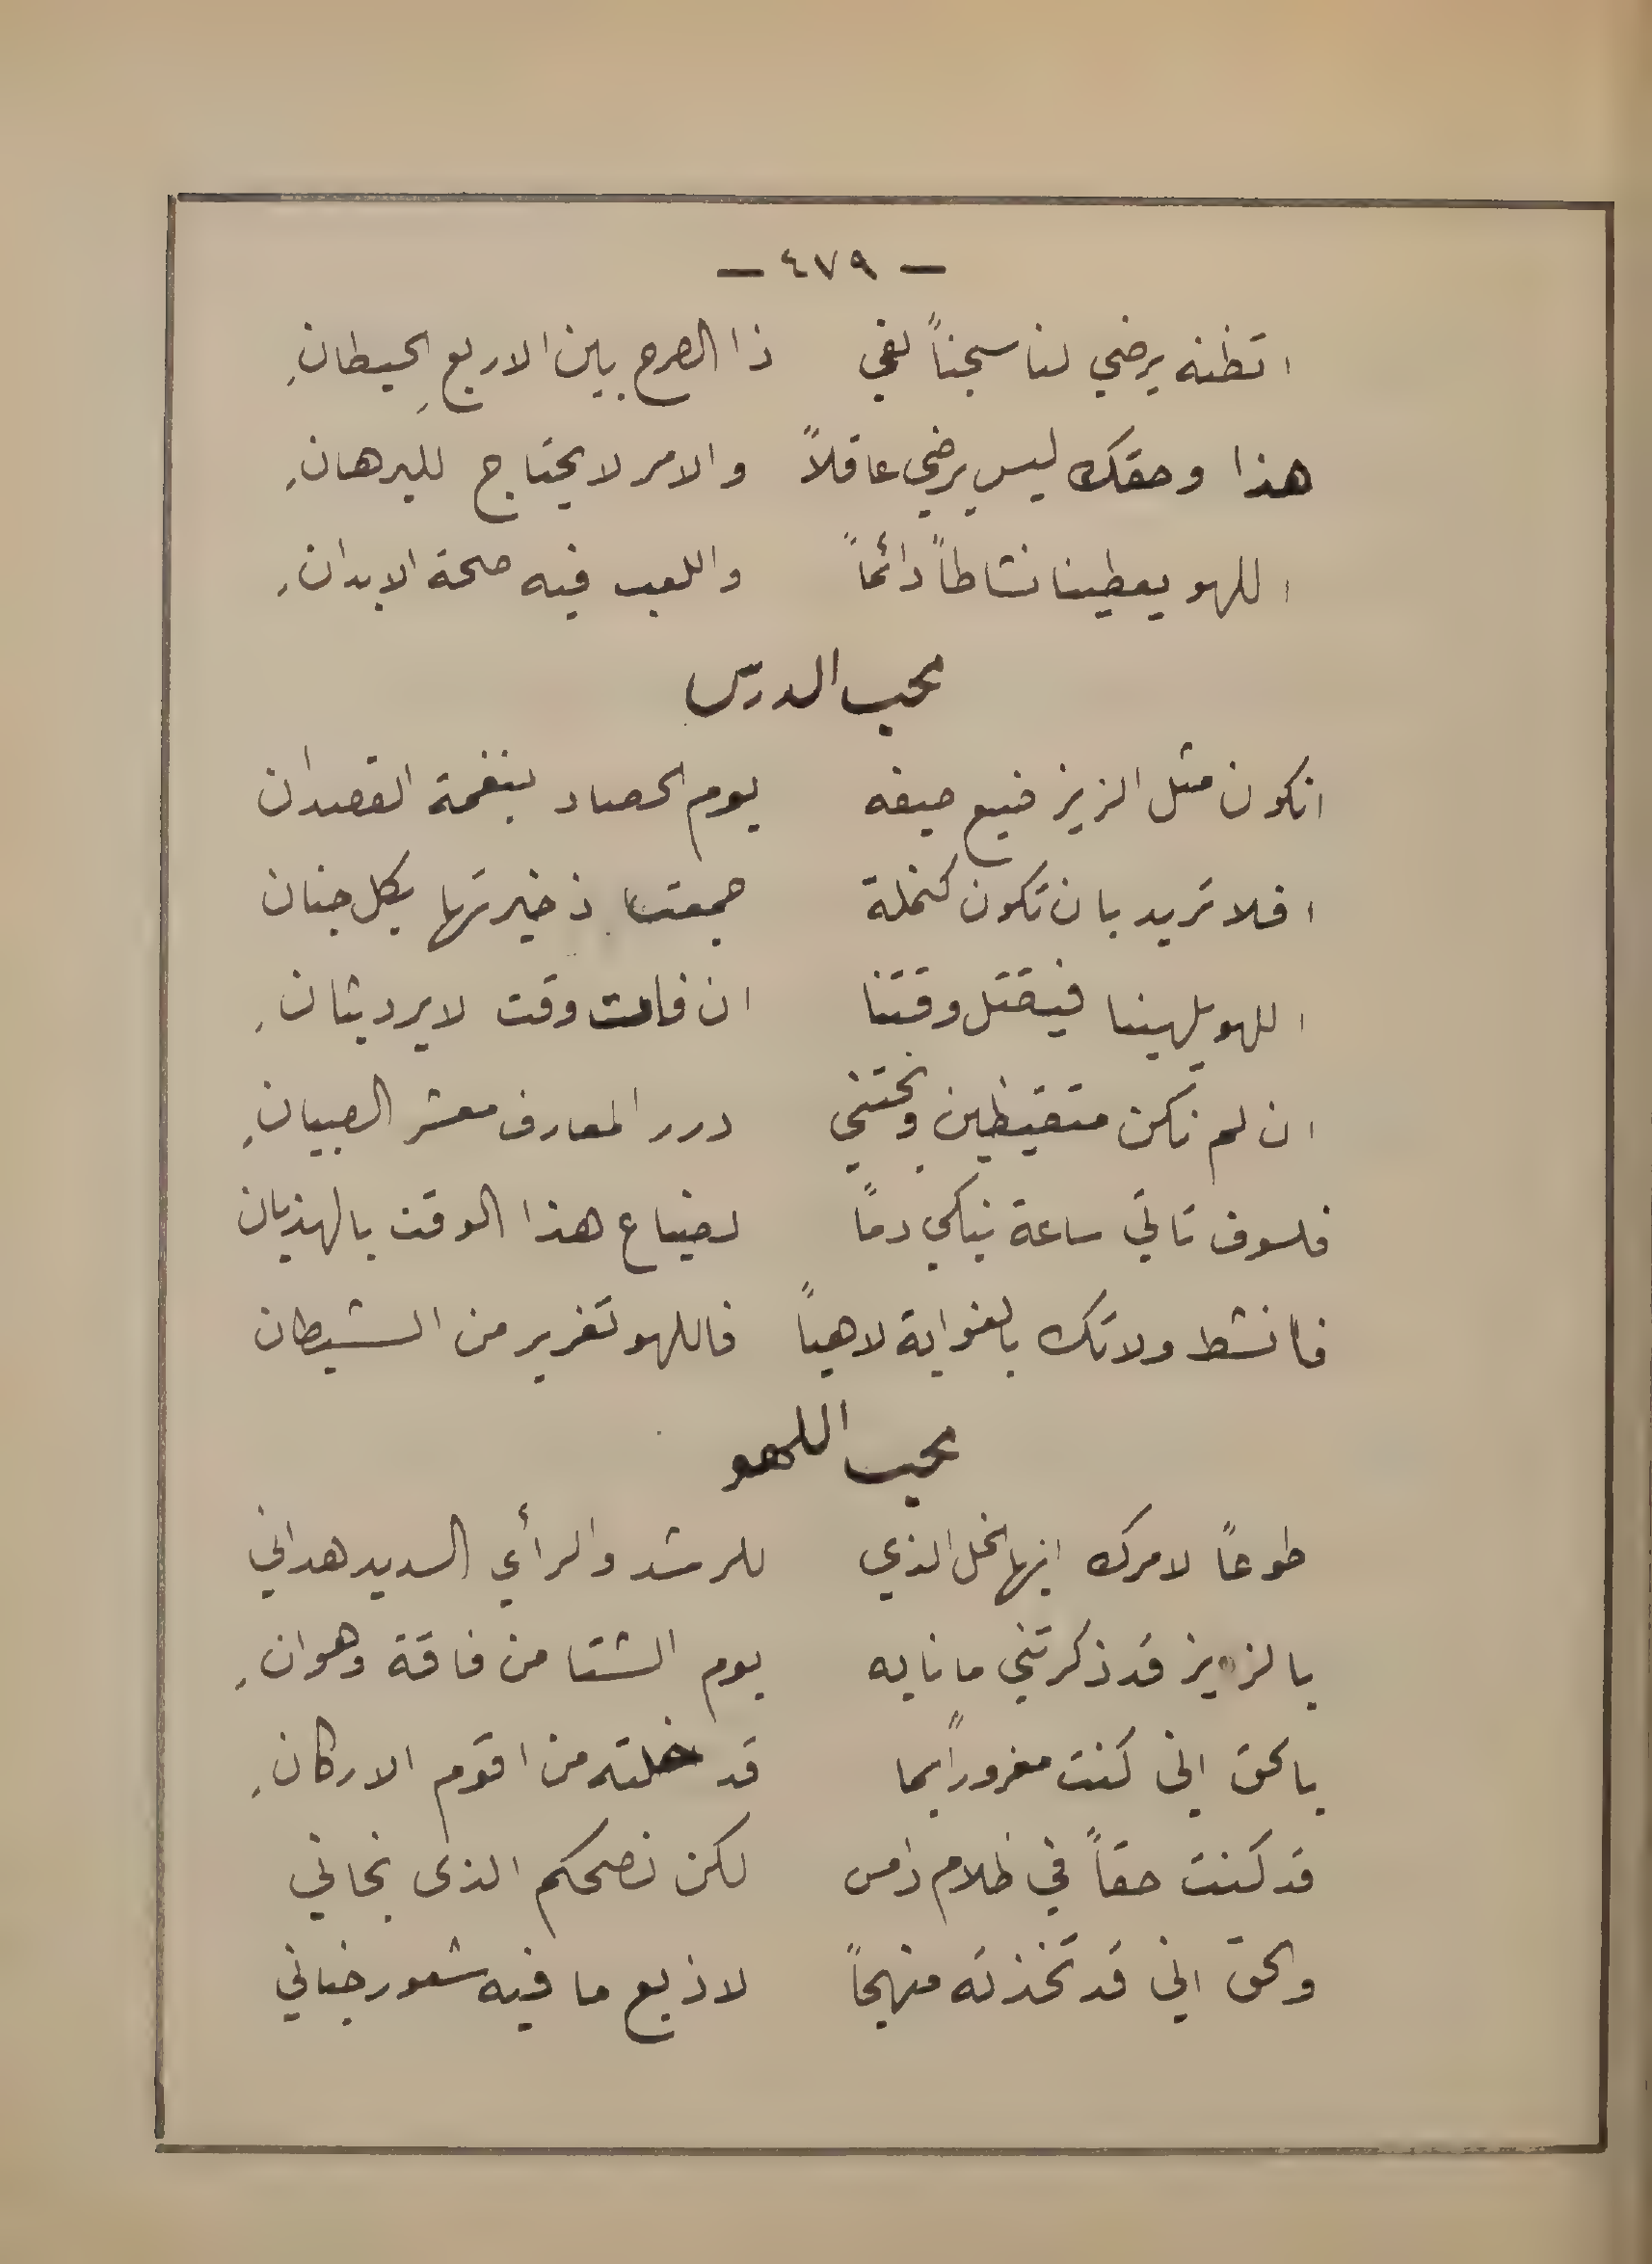 — ٤٧٩ —
اتظنه يرضي لنا سجناً لفي ذا الصرح بين الاربع الحيطانِ
هذا وحقك ليس يرضي عاقلاً والامر لا يحتاج للبرهانِ
اللهو يعطينا نشاطاً دائماً واللعب فيه صحة الابدانِ
محب الدرس
انكون مثل الزيز ضيع صيفه يوم الحصاد بنغمة القصدان
افلا تريد بان تكون كنملة جمعت ذخيرتها بكل جنان
اللهو يلهينا فيقتل وقتنا ان فات وقت لا يرد بثانِ
ان لم نكن متقيظين ونجتني درر المعارف معشر الصبيانِ
فلسوف تاتي ساعة نبكي دماً لضياع هذا الوقت بالهذيان
فانشط ولا تك بالغواية لاهياً فاللهو تغرير من الشيطان
محب اللهو
طوعاً لامرك ايها الخل الذي للرشد والرأي السديد هداني
بالزيز قد ذكرتني ما نابه يوم الشتا من فاقة وهوانِ
بالحق اني كنت مغروراً بما قد خلته من اقوم الاركانِ
قد كنت حقاً في ظلام دامس لكن نصحكم الذى نجاني
والحق اني قد تخذته منهجاً لاذيع ما فيه شعور جناني